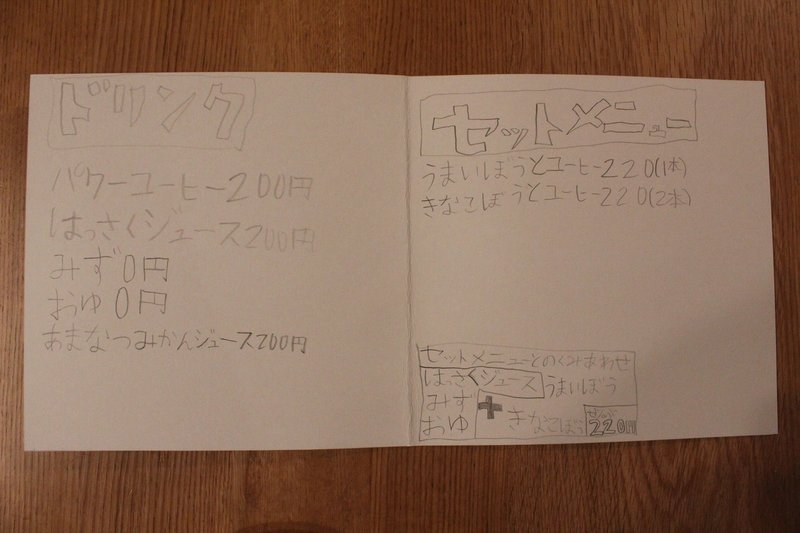 ドリンク
パワーコーヒー200円
はっさくジュース200円
みず0円
おゆ0円
あまなつみかんジュース200円
セットメニュー
うまいぼうとコーヒー220(1本)
きなこぼうとコーヒー220(2本)
セットメニューとのくみあわせ
はっさくジュース
みず
おゆ
+
うまいぼう
きなこぼう
ぜんぶ
220円